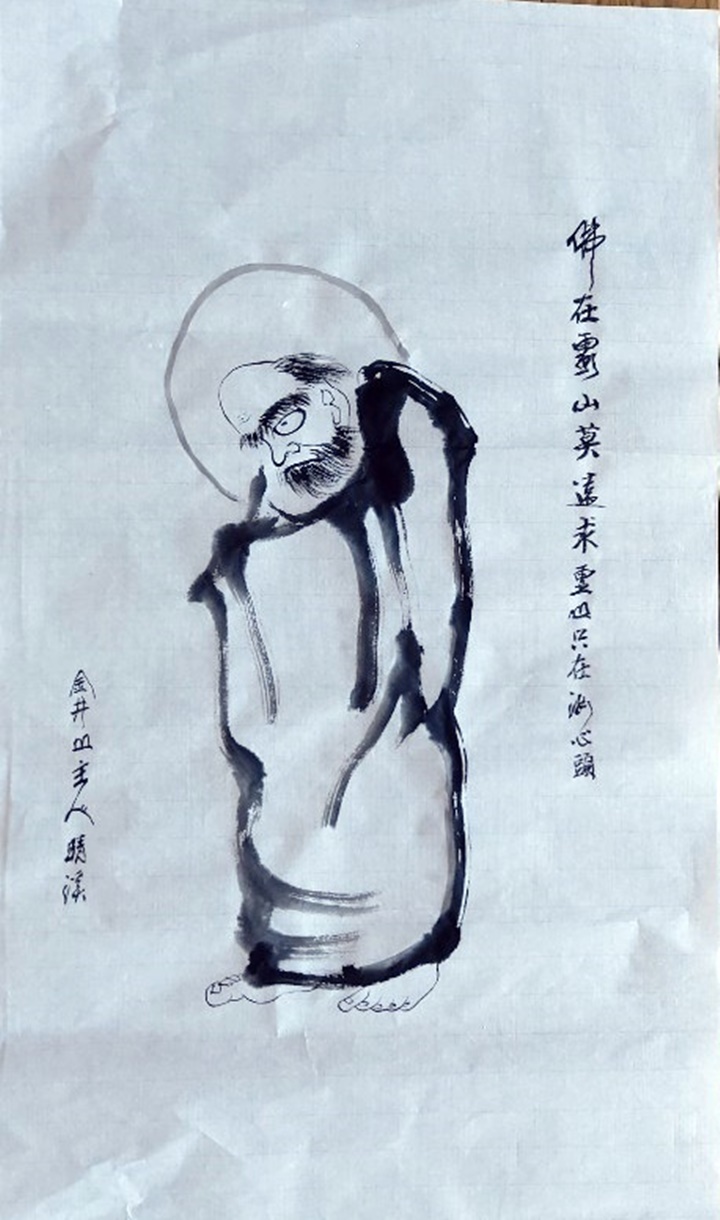 佛在靈山莫遠求靈山只在汝心頭
金井山主人晴溪